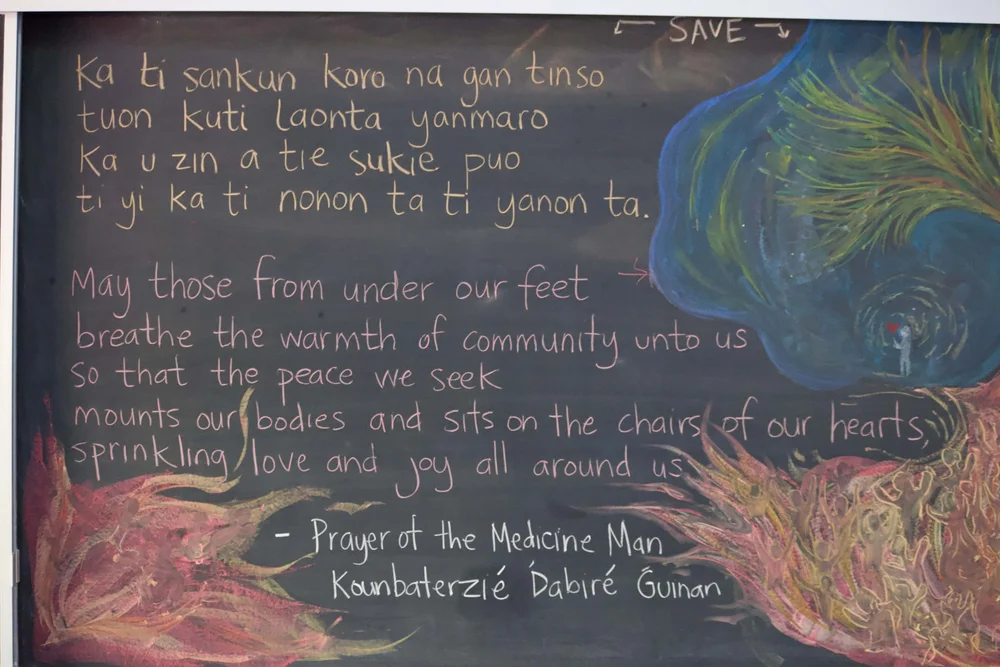 SAVE
Ka ti sankun koro na gan tinso
tuon kuti laonta yanmaro
Ka u zin a tie sukie puo
ti yi ka ti nonon ta ti yanon ta.
May those from under our feet
breathe the warmth of community unto us
so that the peace we seek
mounts our bodies and sits on the chairs of our hearts,
sprinkling love and joy all around us.
- Prayer of the Medicine Man
Kounbaterzié Dabiré Guinan